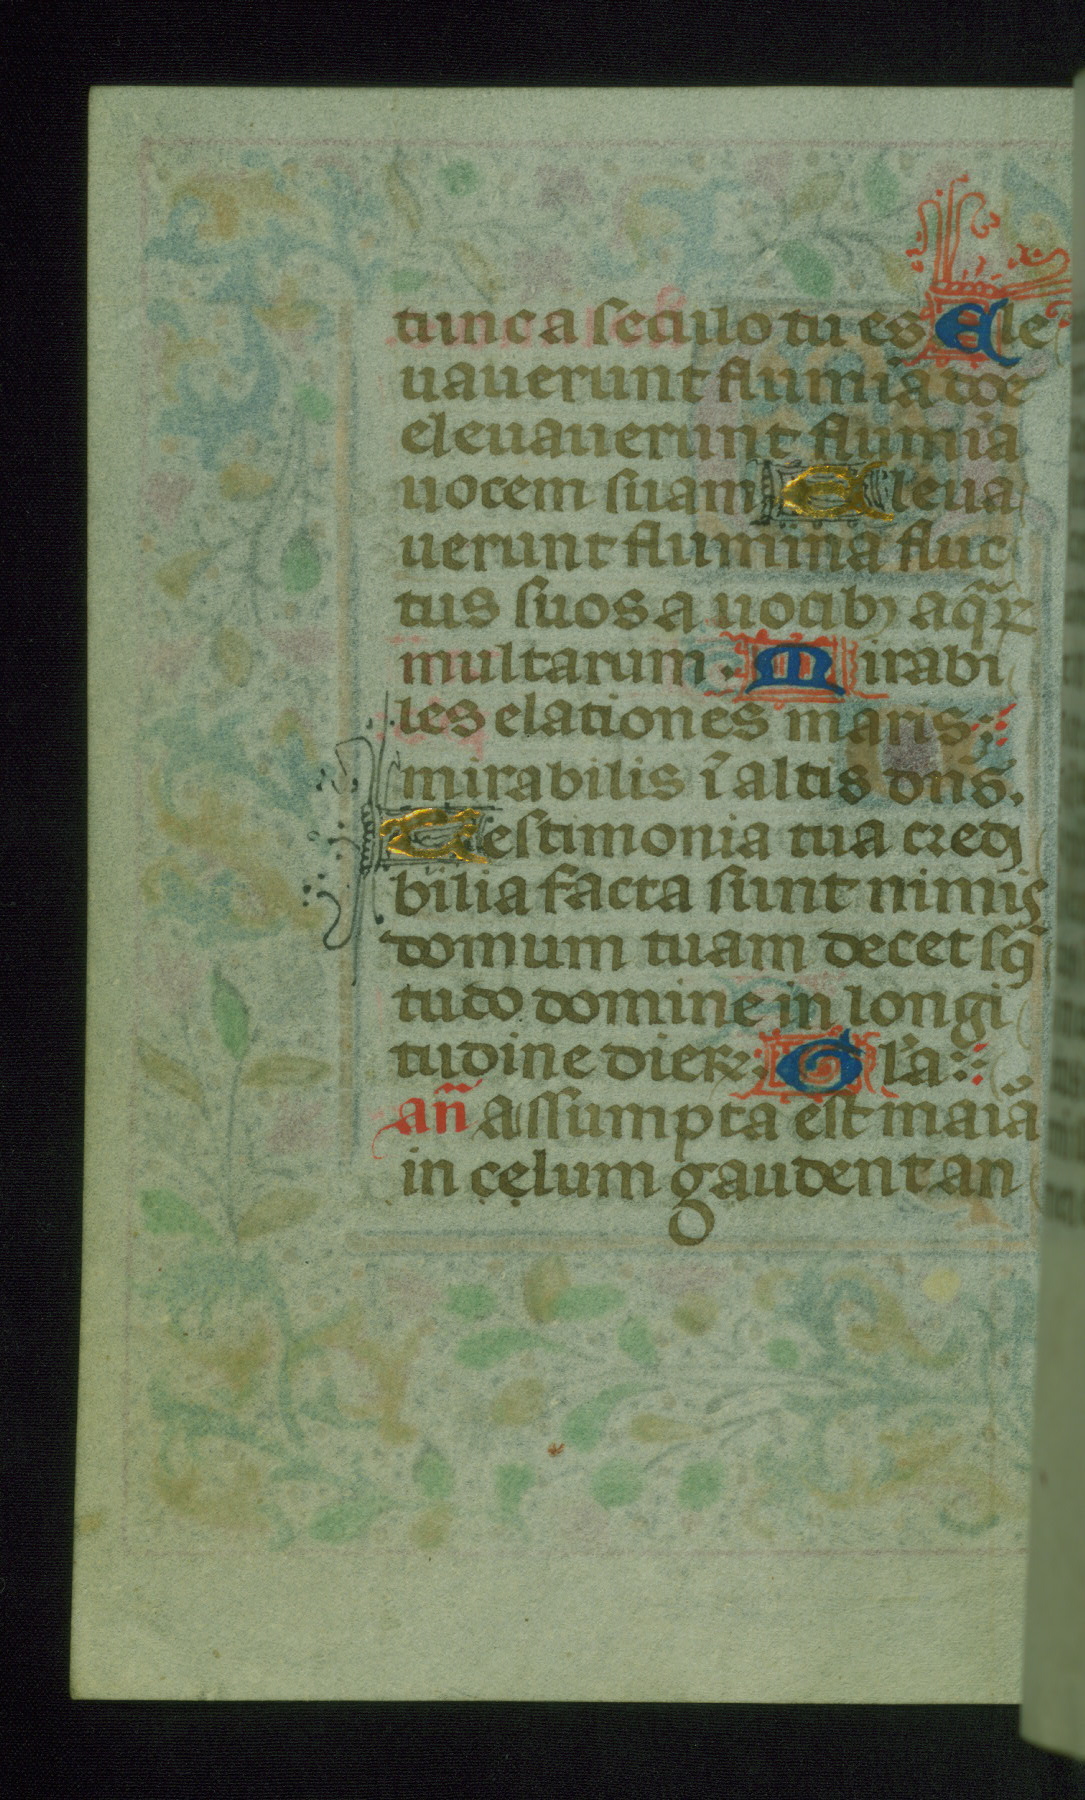 tunc a seculo tu es Ele
uauerunt flumīa dn̄e
eleuauerunt flumīa
uocem suam Eleua
uerunt flumina fluc
tus suos a uocibꝫ aq̄ꝝ
multarum. Mirabi
les elationes maris:
mirabilis ī altis dn̄s.
Testimonia tua credi
bilia facta sunt nimis
domum tuam decet sc̄i
tudo domine in longi
tudine dieꝝ. Gl'a:
an̄ Assumpta est maiā
in celum gaudent an
g